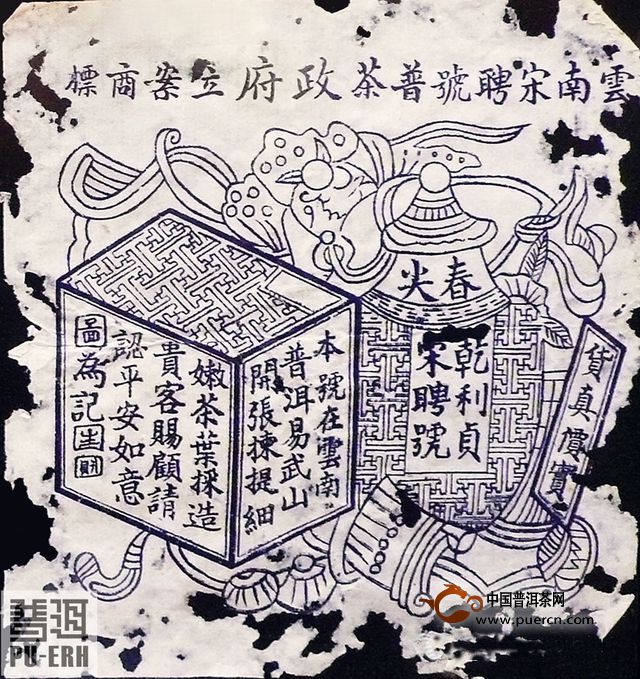 雲南宋聘號普茶政府立案商標
春尖
乾利貞
宋聘號
貨真價實
本號在雲南
普洱易武山
開張揀提細
嫩茶葉採造
貴客賜顧請
認平安如意
圖為記
普洱
PU-ERH
中国普洱茶网
www.puercn.com